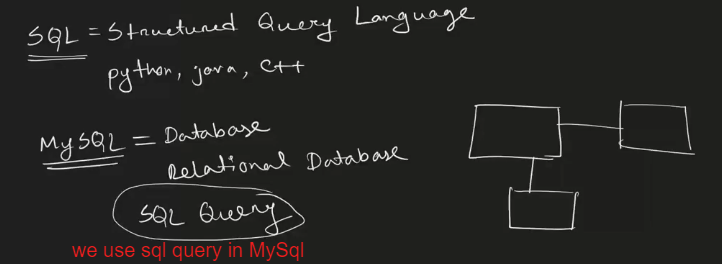 SQL = Structured Query Language
python, java, C++
MySQL = Database
Relational Database
SQL Query
we use sql query in MySql